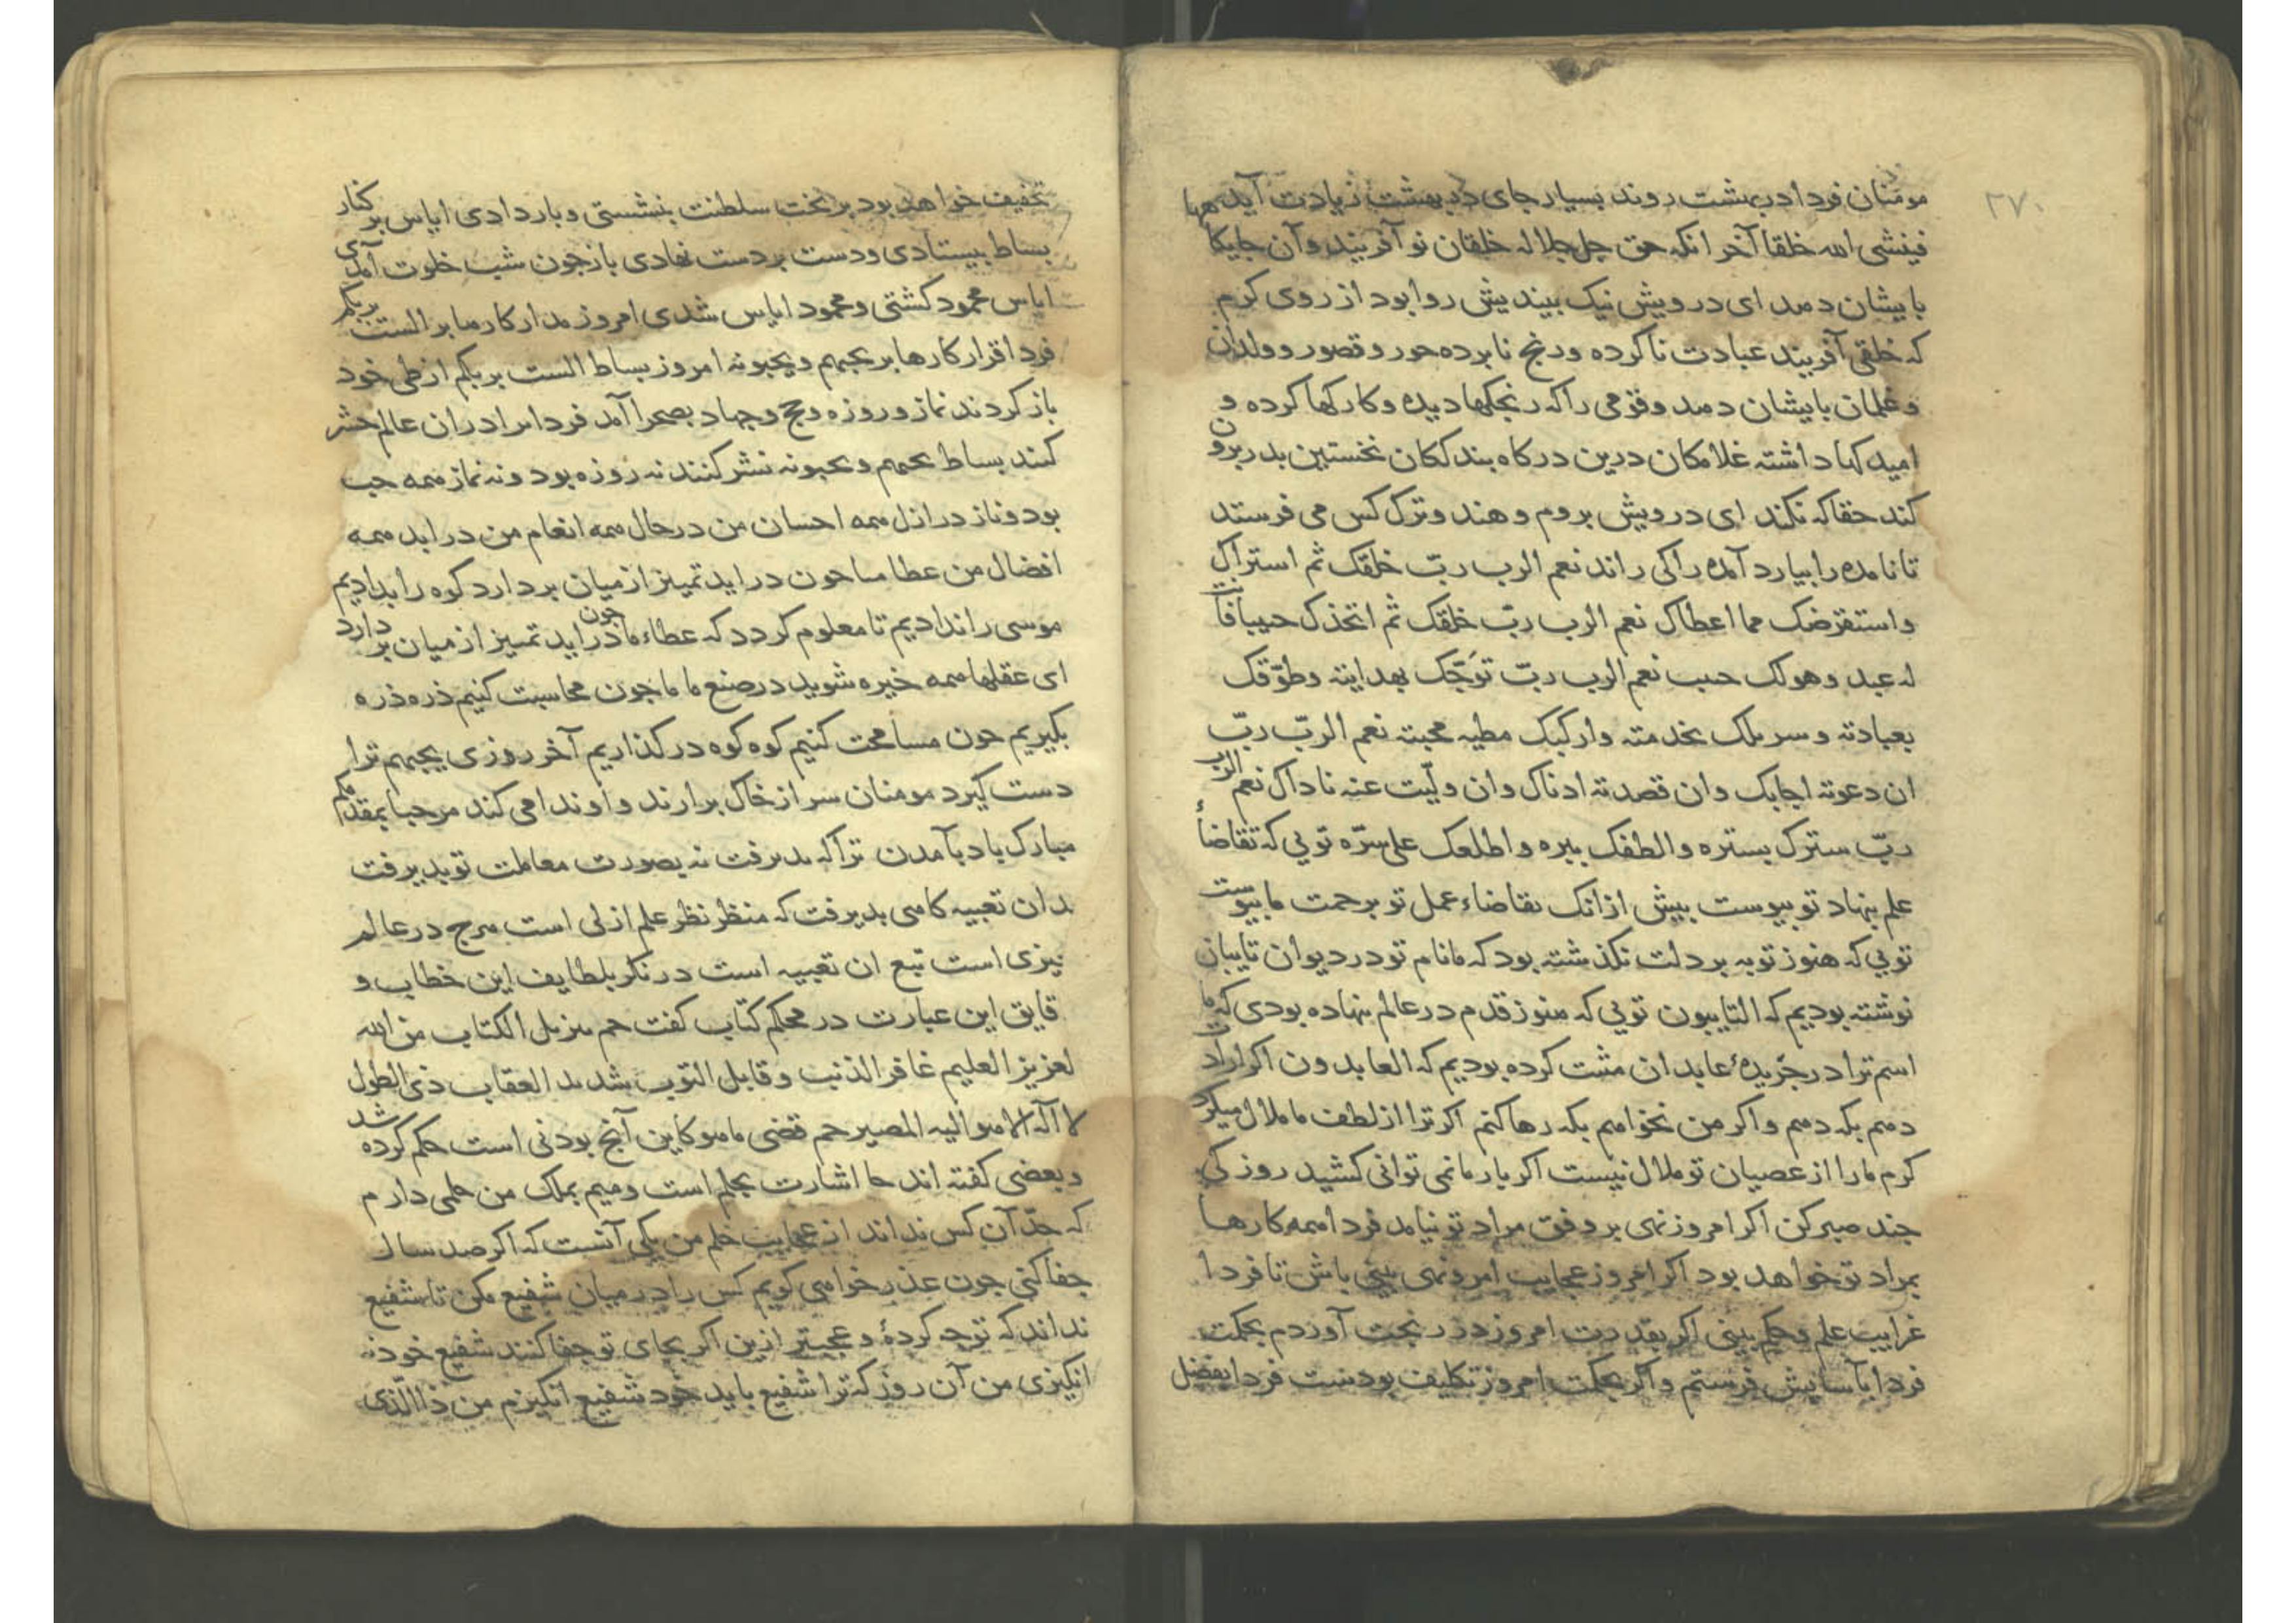 ۲۷۰
مومنان فردا در بهشت روند بسیار جای در بهشت زیادت آید
فینشی الله خلقا آخر انکه حق جل جلاله خلقان نو آفریند وآن جایکا
بایشان دهد ای درویش نیک بیندیش روا بود از روی کرم
که خلقی آفریند عبادت ناکرده ورنج نابرده حور وقصور وولدان
وغلمان بایشان دهد وقومی راکه رنجکها دیده وکارکها کرده و
امیدکها داشته غلامکان درین درکاه بندکان نخستین بدر برون
کند حقاکه نکند ای درویش بروم وهند وترک کس می فرستد
تا نامده را بیارد آمده راکی راند نعم الرب ربّ خلقک ثم استراک
واستقرضک مما اعطاک نعم الرب ربّ خلقک ثم اتخذک حبیبا فانت
له عبد وهولک حب نعم الرب ربّ توّجک بهدایته وطوّقک
بعبادته وسربلک بخدمته وارکبک مطیه محبته نعم الربّ ربّ
ان دعوته اجابک وان قصدته ادناک وان ولّیت عنه ناداک نعم الرب
ربّ سترک بستره والطفک ببره واطلعک علی سرّه تویی که تقاضاٴ
علم بنهاد تو بیوست بیش ازانک تقاضاء عمل تو برحمت ما بیوست
تویی که هنوز توبه بر دلت نکذشته بود که مانام تو در دیوان تایبان
نوشته بودیم که التایبون تویی که هنوز قدم در عالم ننهاده بودی که ما
اسم ترا در جریدهٔ عابدان مثبت کرده بودیم که العابدون اکر ارادت
دهم بکه دهم واکر من نخواهم بکه رها کنم اکر ترا از لطف ما ملال میکیرد
کرم مارا از عصیان تو ملال نیست اکر بار ما نمی توانی کشید روزکی
جند صبر کن اکر امروز نهی بر وفق مراد تو نیامد فردا همه کارها
بمراد تو خواهد بود اکر امروز عجایب امر ونهی بینی باش تا فردا
غرایب علم وحکم بینی اکر بقدرت امروز در رنجت آوردم بحکمت
فردا بآسایش فرستم واکر بحکمت امروز تکلیف بودست فردا بفضل
تخفیف خواهد بود بر تخت سلطنت بنشستی وبار دادی ایاس بر کنار
بساط بیستادی ودست بر دست نهادی باز جون شب خلوت آمدی
ایاس محمود کشتی ومحمود ایاس شدی امروز مدار کارها بر الست بربکم
فردا قرار کارها بر یحبهم ویحبونه امروز بساط الست بربکم از طی خود
باز کردند نماز وروزه وحج وجهاد بصحرا آمد فردا مرا دران عالم حشر
کنند بساط یحبهم ویحبونه نشر کنند نه روزه بود ونه نماز همه حب
بود وناز در ازل همه احسان من در حال همه انعام من در ابد همه
افضال من عطا ما جون دراید تمییز از میان بر دارد کوه را بدادیم
موسی را ندادیم تا معلوم کردد که عطاء ما جون دراید تمییز از میان بر دارد
ای عقلها همه خیره شوید در صنع ما ما جون محاسبت کنیم ذره ذره
بکیریم جون مسامحت کنیم کوه کوه درکذاریم آخر روزی یحبهم ترا
دست کیرد مومنان سر از خاک برارند واو ندا می کند مرحبا بمقدمکم
مبارک باد بآمدن تراکه بدیرفت نه بصورت معاملت تو بدیرفت
بدان تعبیه کاهی بدیرفت که منظر نظر علم ازلی است هرج در عالم
چیزی است تبع ان تعبیه است درنکر بلطایف این خطاب و
قایق این عبارت در محکم کتاب کفت حم تنزیل الکتاب من الله
لعزیز العلیم غافر الذنب وقابل التوب شدید العقاب ذی الطول
لا اله الا هو الیه المصیر حم قضی ما هو کاین آنج بودنی است حکم کرده شد
وبعضی کفته اند حا اشارت بحلم است ومیم بملک من حلمی دارم
که حدّ آن کس نداند از عجایب حلم من یکی آنست که اکر صد سال
جفا کنی جون عذر خواهی کویم کس را در میان شفیع مکن تا شفیع
نداند که توجه کردهٔ وعجبتر ازین اکر بجای تو جفا کنند شفیع خود نه
انکیزی من آن روز که ترا شفیع باید خود شفیع انکیزم من ذا الّذی